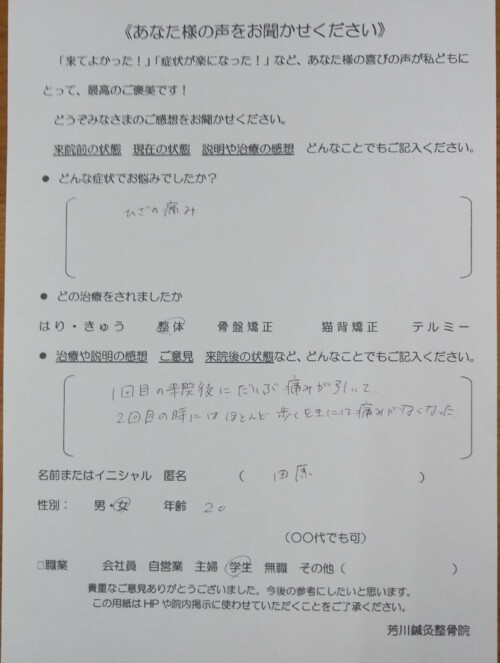 《あなた様の声をお聞かせください》
「来てよかった！」「症状が楽になった！」など、あなた様の喜びの声が私どもに
とって、最高のご褒美です！
どうぞみなさまのご感想をお聞かせください。
来院前の状態　現在の状態　説明や治療の感想　どんなことでもご記入ください。
● どんな症状でお悩みでしたか？
ひざの痛み
● どの治療をされましたか
はり・きゅう　整体　骨盤矯正　猫背矯正　テルミー
● 治療や説明の感想　ご意見　来院後の状態など、どんなことでもご記入ください。
1回目の来院後にだいぶ痛みが引いて、
2回目の時にはほとんど歩くときには痛みがなくなった
名前またはイニシャル　匿名　（　田原　）
性別：　男・女　年齢　20
（〇〇代でも可）
□職業　会社員　自営業　主婦　学生　無職　その他（　）
貴重なご意見ありがとうございました。今後の参考にしたいと思います。
この用紙はHPや院内掲示に使わせていただくことをご了承ください。
芳川鍼灸整骨院